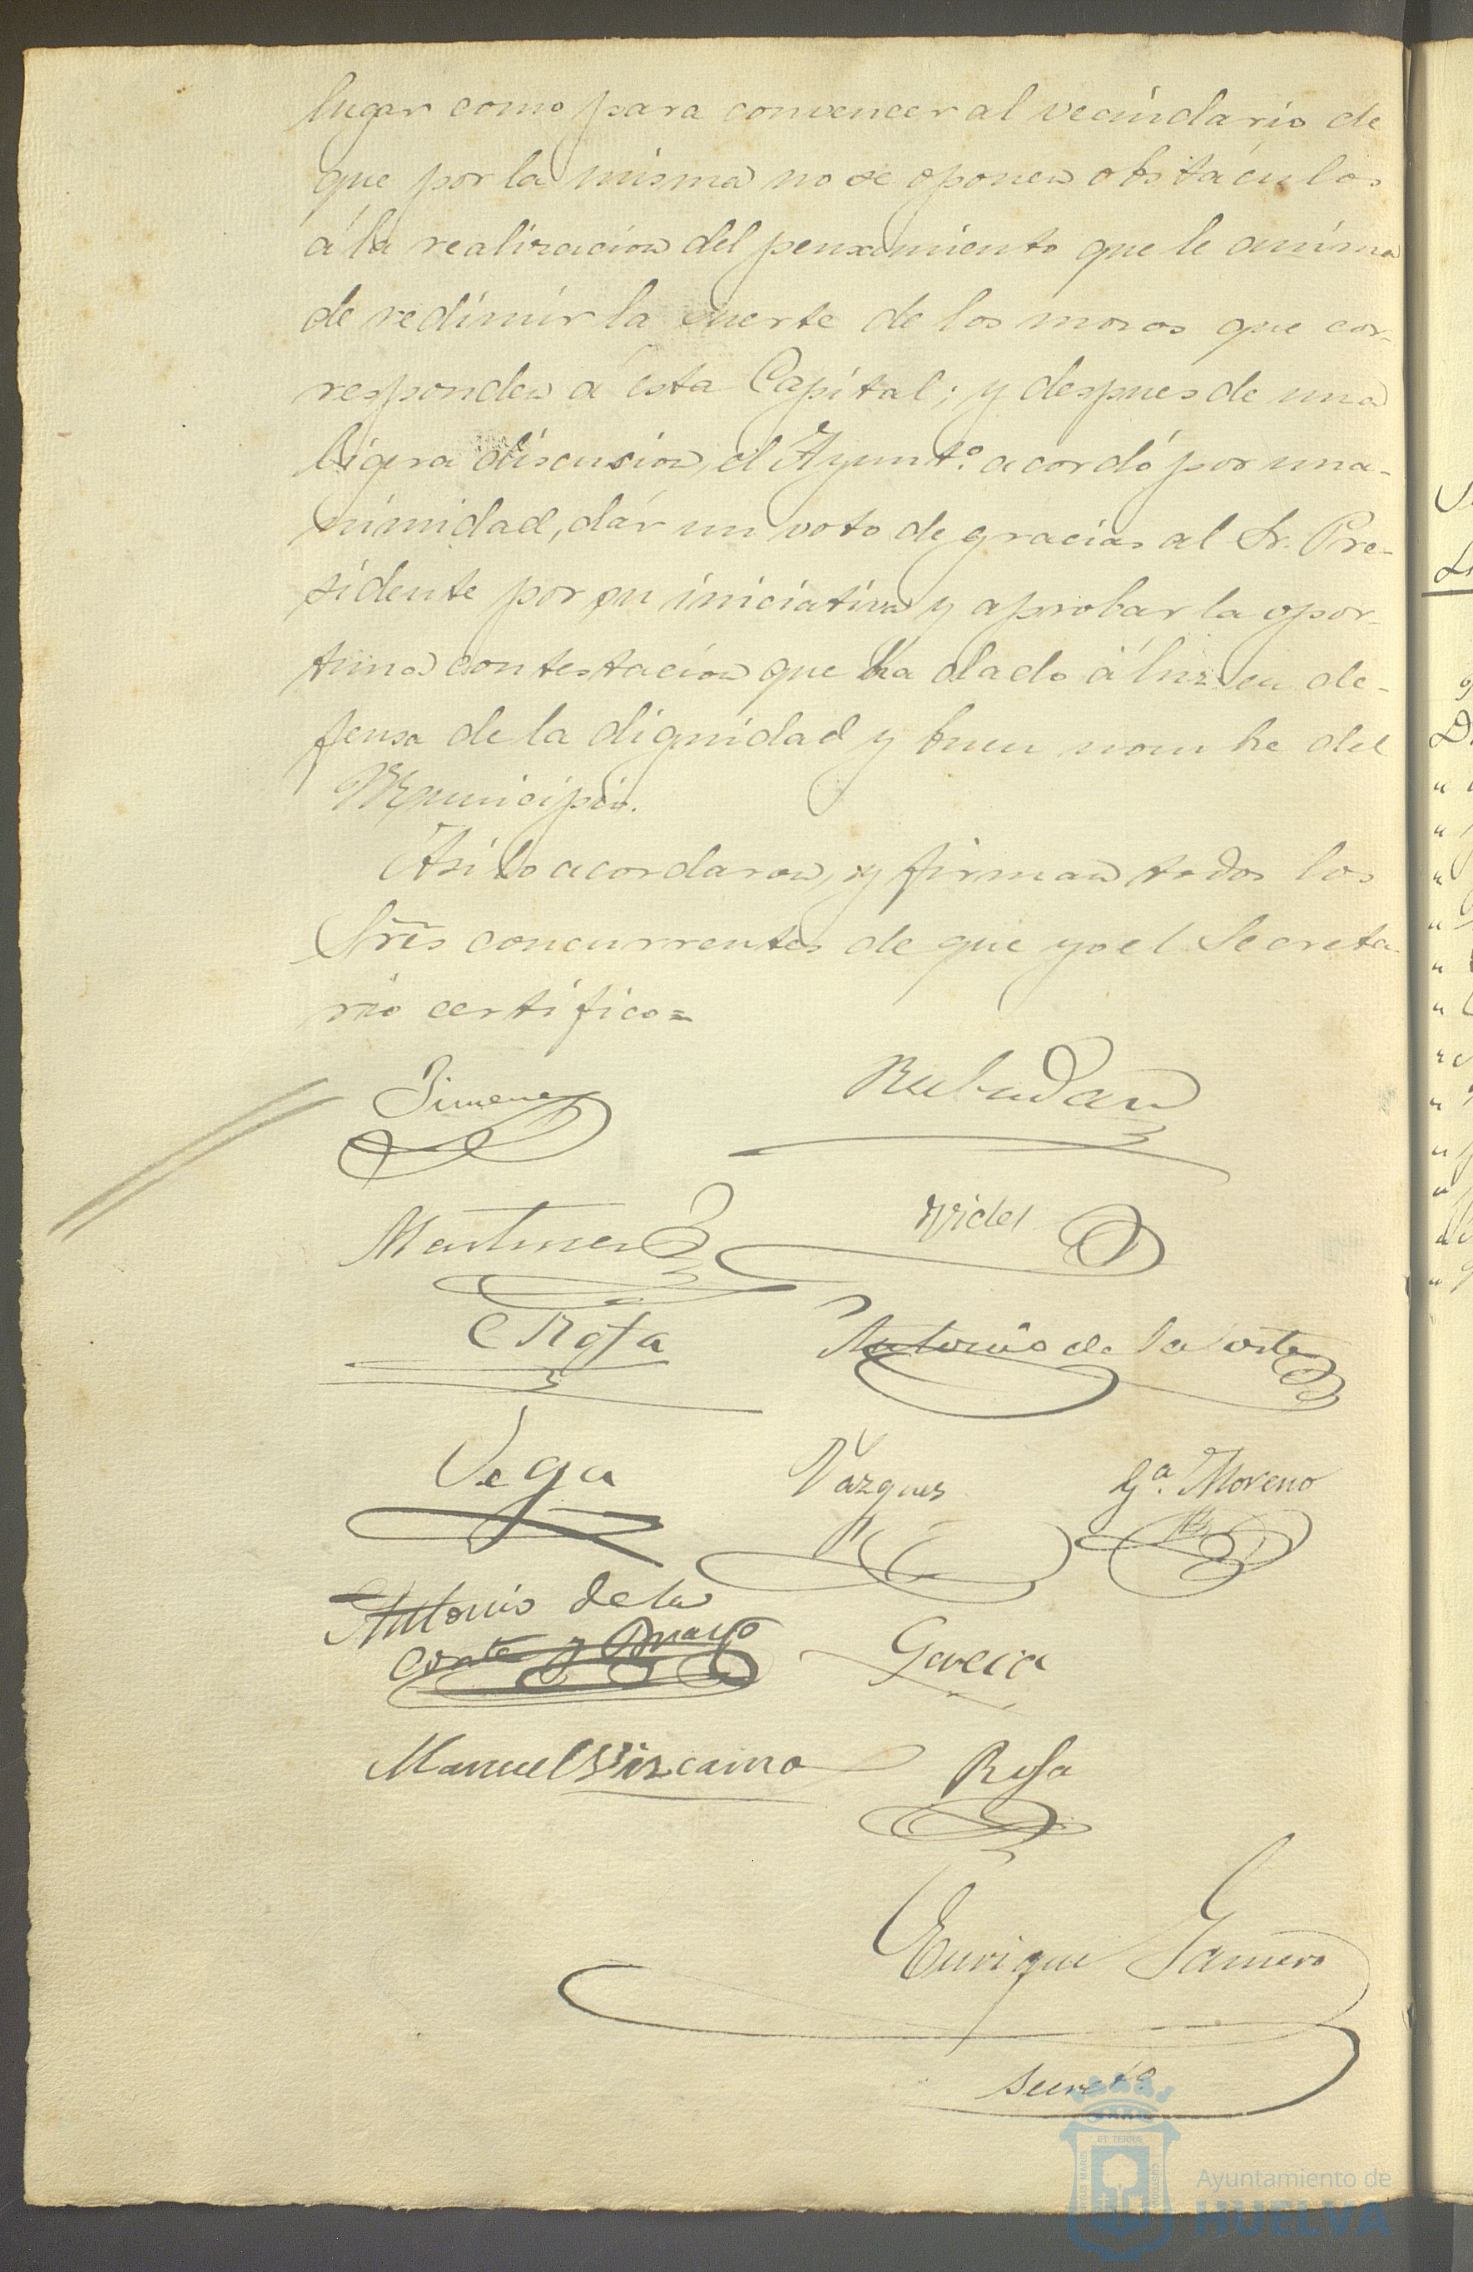 lugar como para convencer al vecindario de
que por la misma no se oponen obstáculos
á la realizacion del pensamiento que le anima
de redimir la suerte de los mozos que cor-
responden á esta Capital; y despues de una
ligera discusion, el Ayunt.º acordó por una-
nimidad, dár un voto de gracias al Sr. Pre-
sidente por su iniciativa y aprobar la opor-
tuna contestacion que ha dado á luz en de-
fensa de la dignidad y buen nombre del
Municipio.
Asi lo acordaron, y firman todos los
Sres concurrentes de que yo el Secreta-
rio certifico=
Jimenez
Rebadan
Martinez
Vidal
Antonio de la Corte
Vega
Vazquez
Gª. Moreno
Antonio de la
Corte y Bravo
Garcia
Manuel Vizcaino
Rosa
Enrique
Secretº
ET TERRA
PORTUS MARIS
CUSTODIA
Ayuntamiento de
HUELVA